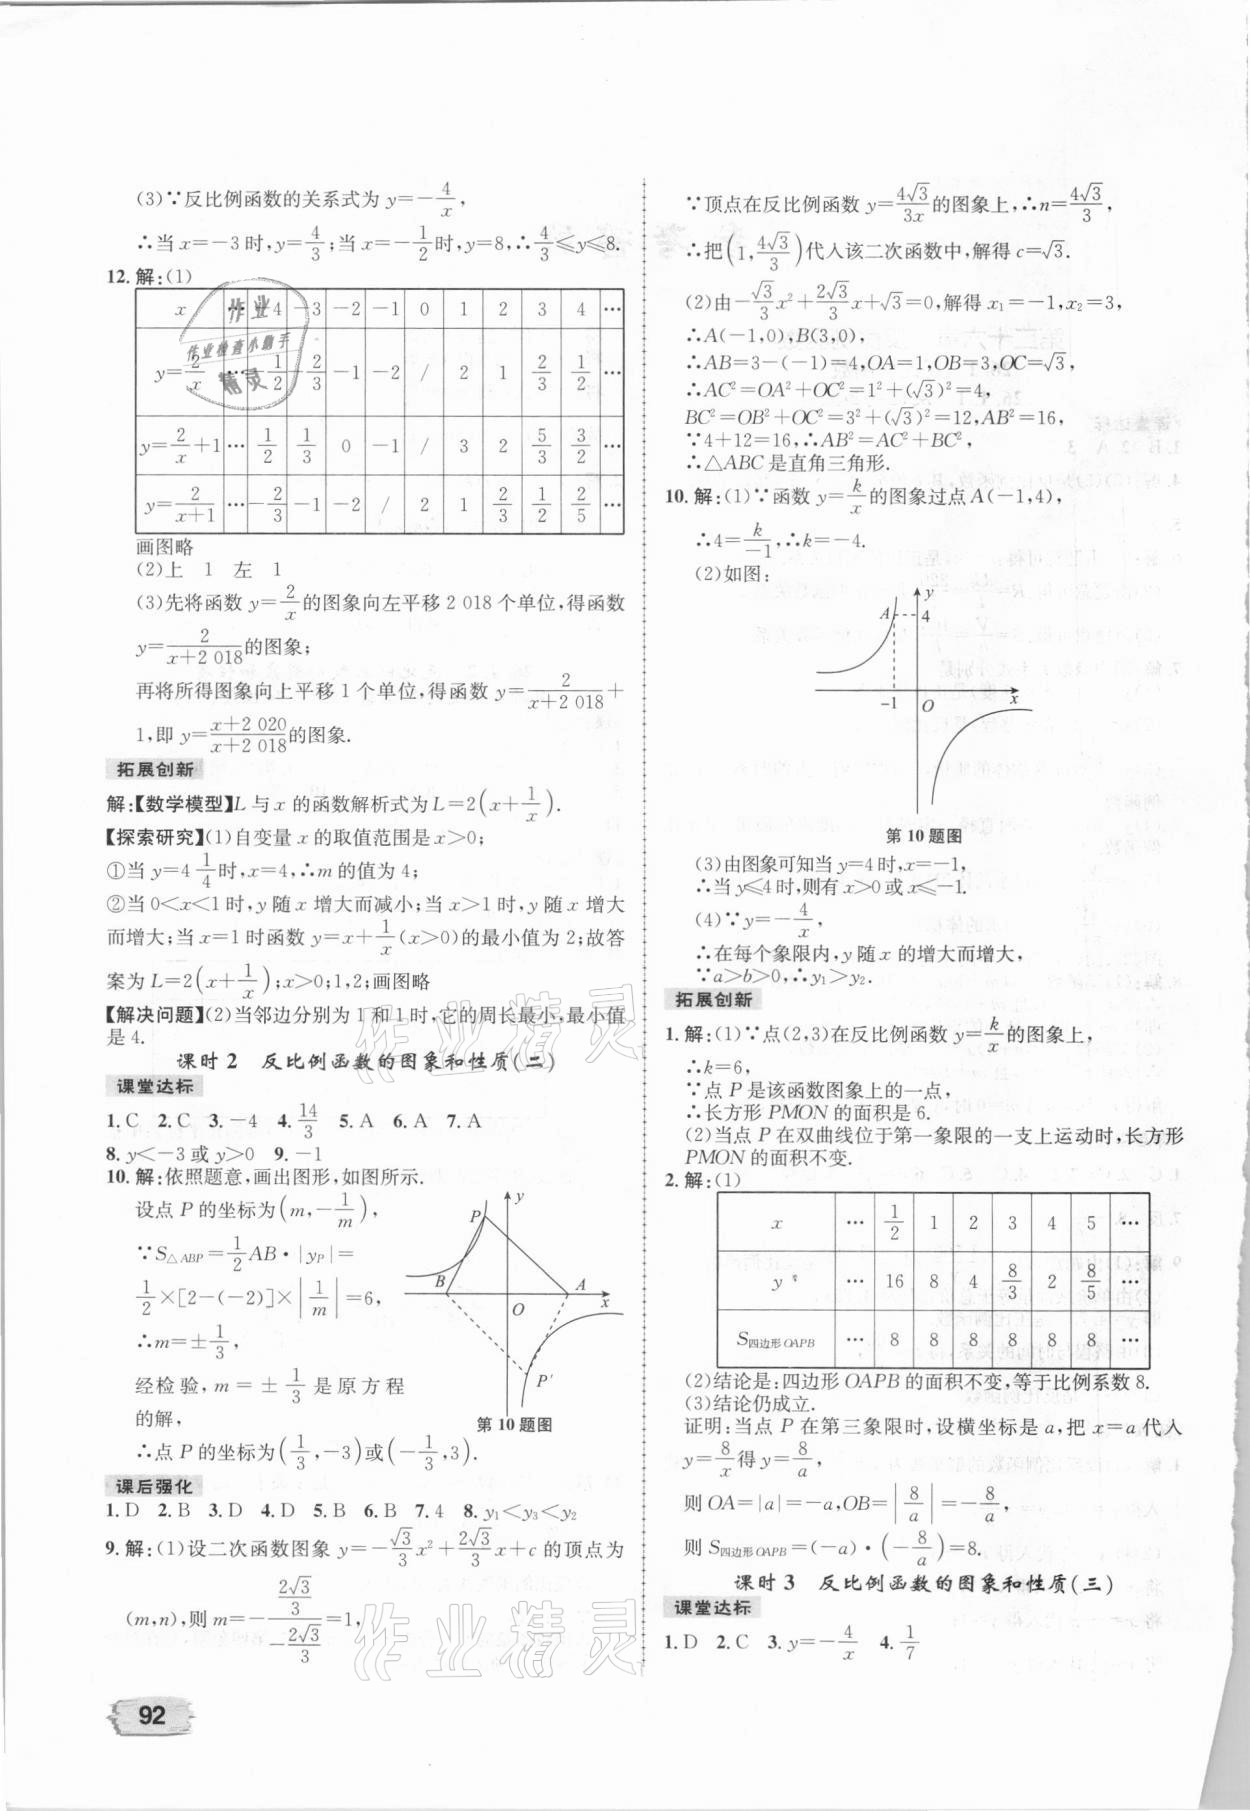 (3)∵反比例函数的关系式为 y=-4/x,
∴当 x=-3 时,y=4/3;当 x=-1/2时,y=8,∴4/3≤y≤8.
12.解:(1)
x 4 -3 -2 -1 0 1 2 3 4 …
y=2/x … 1/2 -2/3 -1 -2 / 2 1 2/3 1/2 …
y=2/x+1 … 1/2 1/3 0 -1 / 3 2 5/3 3/2 …
y=2/(x+1) … -2/3 -1 -2 / 2 1 2/3 1/2 2/5 …
画图略
(2)上 1 左 1
(3)先将函数 y=2/x的图象向左平移 2 018 个单位,得函数
y=2/(x+2 018)的图象;
再将所得图象向上平移 1 个单位,得函数 y=2/(x+2 018)+
1,即 y=(x+2 020)/(x+2 018)的图象.
拓展创新
解:【数学模型】L 与 x 的函数解析式为 L=2(x+1/x).
【探索研究】(1)自变量 x 的取值范围是 x>0;
①当 y=4 1/4时,x=4,∴m 的值为 4;
②当 0<x<1 时,y 随 x 增大而减小;当 x>1 时,y 随 x 增大
而增大;当 x=1 时函数 y=x+1/x(x>0)的最小值为 2;故答
案为 L=2(x+1/x);x>0;1,2;画图略
【解决问题】(2)当邻边分别为 1 和 1 时,它的周长最小,最小值
是 4.
课时 2 反比例函数的图象和性质(二)
课堂达标
1.C 2.C 3.-4 4.14/3 5.A 6.A 7.A
8.y<-3 或 y>0 9.-1
10.解:依照题意,画出图形,如图所示.
设点 P 的坐标为(m,-1/m),
∵S△ABP=1/2AB·|yP|=
1/2×[2-(-2)]×|1/m|=6,
∴m=±1/3,
经检验,m=±1/3是原方程
的解,
y
P
B
A
O
x
P′
第10题图
∴点 P 的坐标为(1/3,-3)或(-1/3,3).
课后强化
1.D 2.B 3.D 4.D 5.B 6.B 7.4 8.y₁<y₃<y₂
9.解:(1)设二次函数图象 y=-√3/3x²+2√3/3x+c 的顶点为
(m,n),则 m=-(2√3/3)/(-2√3/3)=1,
92
∵顶点在反比例函数 y=4√3/3x的图象上,∴n=4√3/3,
∴把(1,4√3/3)代人该二次函数中,解得 c=√3.
(2)由-√3/3x²+2√3/3x+√3=0,解得 x₁=-1,x₂=3,
∴A(-1,0),B(3,0),
∴AB=3-(-1)=4,OA=1,OB=3,OC=√3,
∴AC²=OA²+OC²=1²+(√3)²=4,
BC²=OB²+OC²=3²+(√3)²=12,AB²=16,
∵4+12=16,∴AB²=AC²+BC²,
∴△ABC 是直角三角形.
10.解:(1)∵函数 y=k/x的图象过点 A(-1,4),
∴4=k/-1,∴k=-4.
(2)如图:
y
A
4
-1
O
x
第10题图
(3)由图象可知当 y=4 时,x=-1,
∴当 y≤4 时,则有 x>0 或 x≤-1.
(4)∵y=-4/x,
∴在每个象限内,y 随 x 的增大而增大,
∵a>b>0,∴y₁>y₂.
拓展创新
1.解:(1)∵点(2,3)在反比例函数 y=k/x的图象上,
∴k=6,
∵点 P 是该函数图象上的一点,
∴长方形 PMON 的面积是 6.
(2)当点 P 在双曲线位于第一象限的一支上运动时,长方形
PMON 的面积不变.
2.解:(1)
x … 1/2 1 2 3 4 5 …
y … 16 8 4 8/3 2 8/5 …
S四边形OAPB … 8 8 8 8 8 8 …
(2)结论是:四边形 OAPB 的面积不变,等于比例系数 8.
(3)结论仍成立.
证明:当点 P 在第三象限时,设横坐标是 a,把 x=a 代入
y=8/x得 y=8/a,
则 OA=|a|=-a,OB=|8/a|=-8/a,
则 S四边形OAPB=(-a)·(-8/a)=8.
课时 3 反比例函数的图象和性质(三)
课堂达标
1.D 2.C 3.y=-4/x 4.1/7
作业
作业检查小助手
精灵
作业精灵
作业精灵